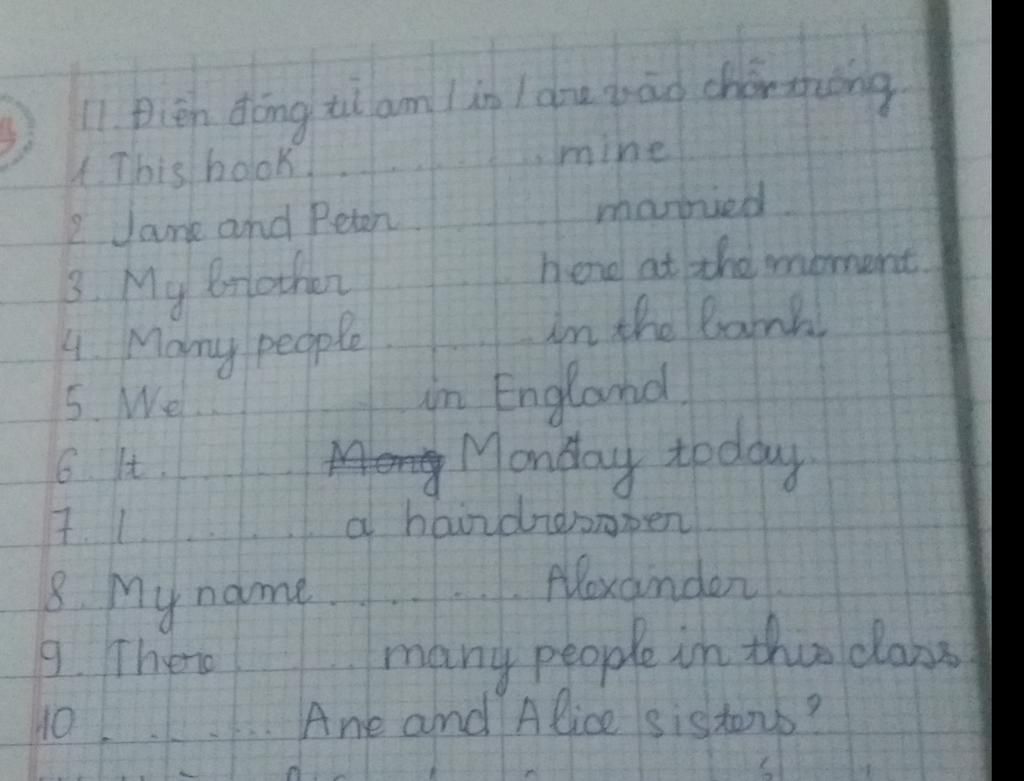 II. Điền động từ am / is / are vào chỗ trống.
1. This book ............ mine
2. Jane and Peter ........ married.
3. My brother ........ here at the moment.
4. Many people ........ in the bank.
5. We ........ in England.
6. It ........ Monday today.
7. I ........ a hairdresser
8. My name ............ Alexander
9. There ........ many people in this class
10. ........ Ane and Alice sisters?